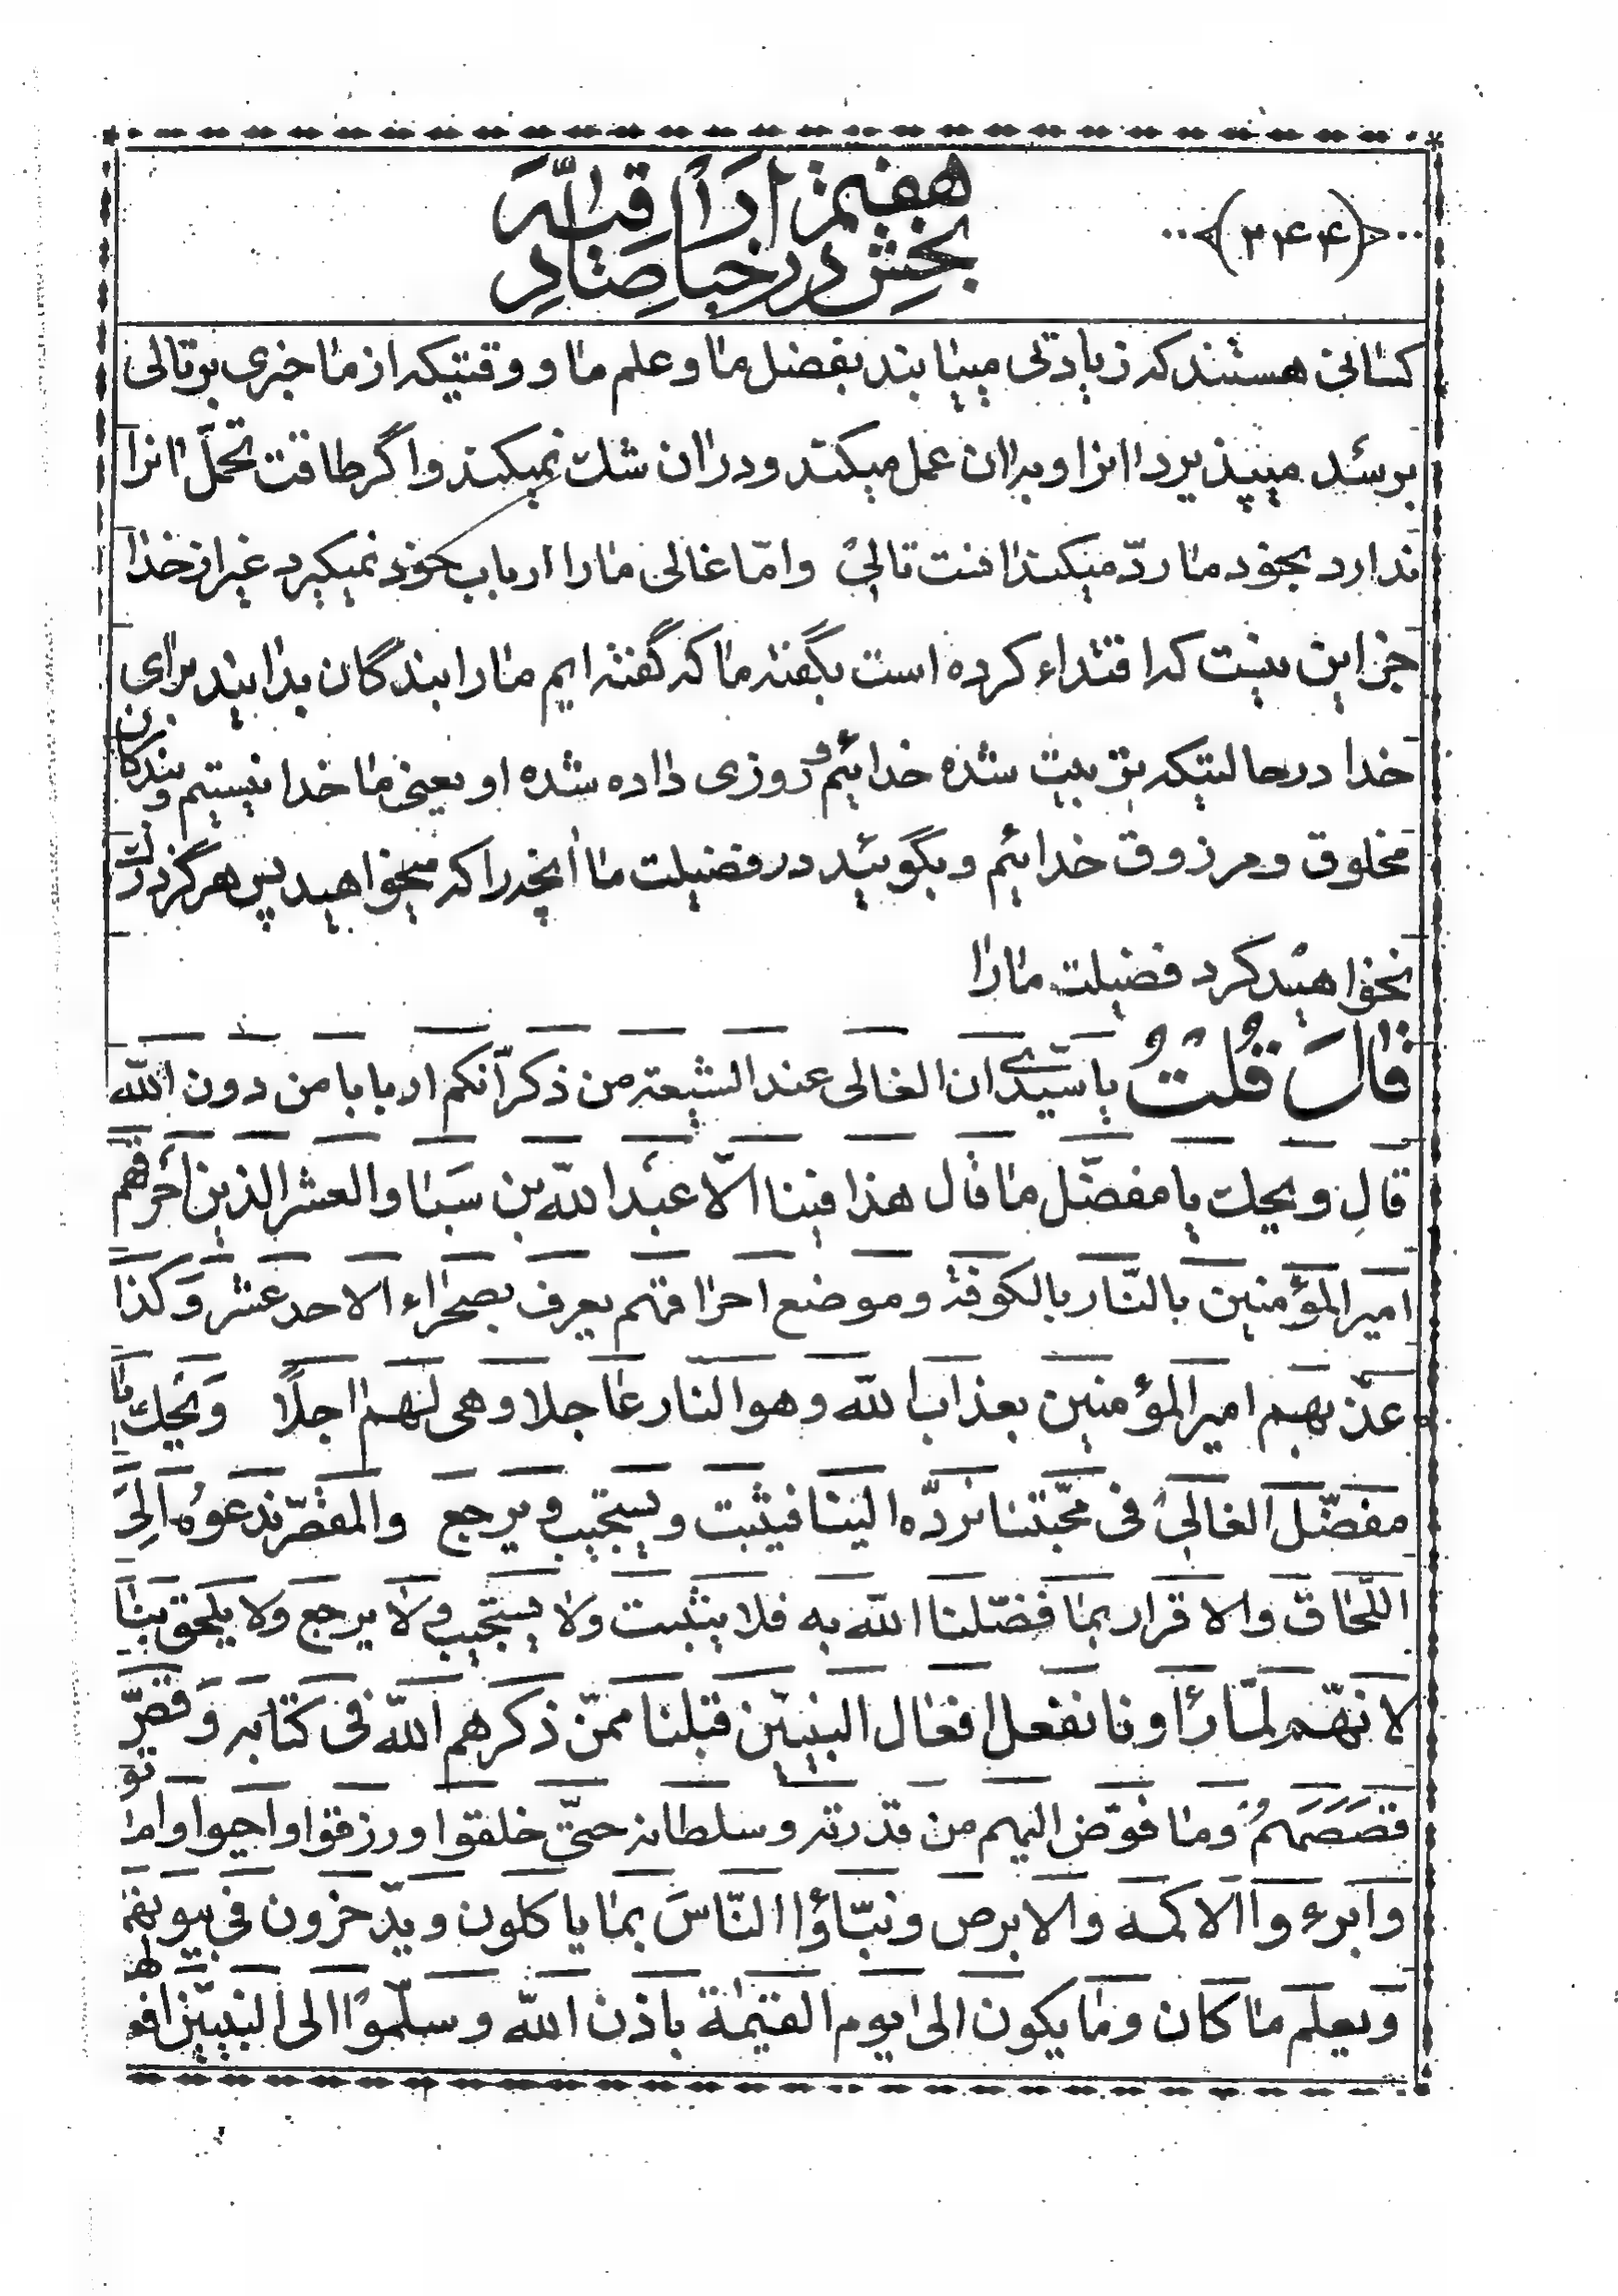 ﴿۳۴۴﴾
بخش هفتم در اخبار صادر
کسانی هستند که زیادتی مییابند بفضل ما و علم ما و وقتیکه از ما خبری بر تالی
برسد میپذیرد انرا و بدان عمل میکند و در ان شک نمیکند و اگر طاقت تحمّل انرا
ندارد بخود ما ردّ میکند اینست تالی و امّا غالی ما را ارباب خود نمیگیرد غیر از خدا
جز این نیست که اقتداء کرده است بگفته ما که گفته ایم ما را بندگان بدانید برای
خدا درحالیتکه تربیت شده خدائیم و روزی داده شده او یعنی ما خدا نیستیم و بندگان
مخلوق و مرزوق خدائیم و بگوئید در فضیلت ما انچه را که میخواهید پس هرگز درک
نخواهید کرد فضیلت ما را
قَالَ قُلْتُ یا سیّدی ان الغالی عند الشیعة من ذکر انّکم اربابا من دون اللّه
قالِ ویحک یا مفضّل ما قال هذا فینا الّا عبد اللّه بن سَبَا و العشر الذین احرقهم
امیر المؤمنین بالنّار بالکوفة و موضع احراقهم یعرف بصحراء الاحد عشر وَ کذا
عذّبهم امیر المؤمنین بعذاب اللّه و هو النار عاجلا و هی لهم اجلًا وَیْحک یا
مفضّل الغالی فی محبّتنا نردّه الینا فیثبت و یستجیب و یرجع و المقصّر ندعوه الی
اللّحاق و الاقرار بما فضّلنا اللّه به فلا یثبت ولا یستجیب ولا یرجع ولا یلحق بنا
لانّهم لمّا رأونا نفعل افعال النبیّین قبلنا ممّن ذکرهم اللّه فی کتابه وَ قصّ
قصَصَهُم وما فوّض الیهم من قدرته و سلطانه حتّی خلقوا و رزقوا و احیوا و اماتو
و ابرءوا الاکمه و الابرص و نبّاؤا النّاسَ بما یاکلون و یدّخرون فی بیوتهم
وَ یعلم ما کان و ما یکون الی یوم القیمة باذن اللّه و سلّموا الی النبیّین افعالها